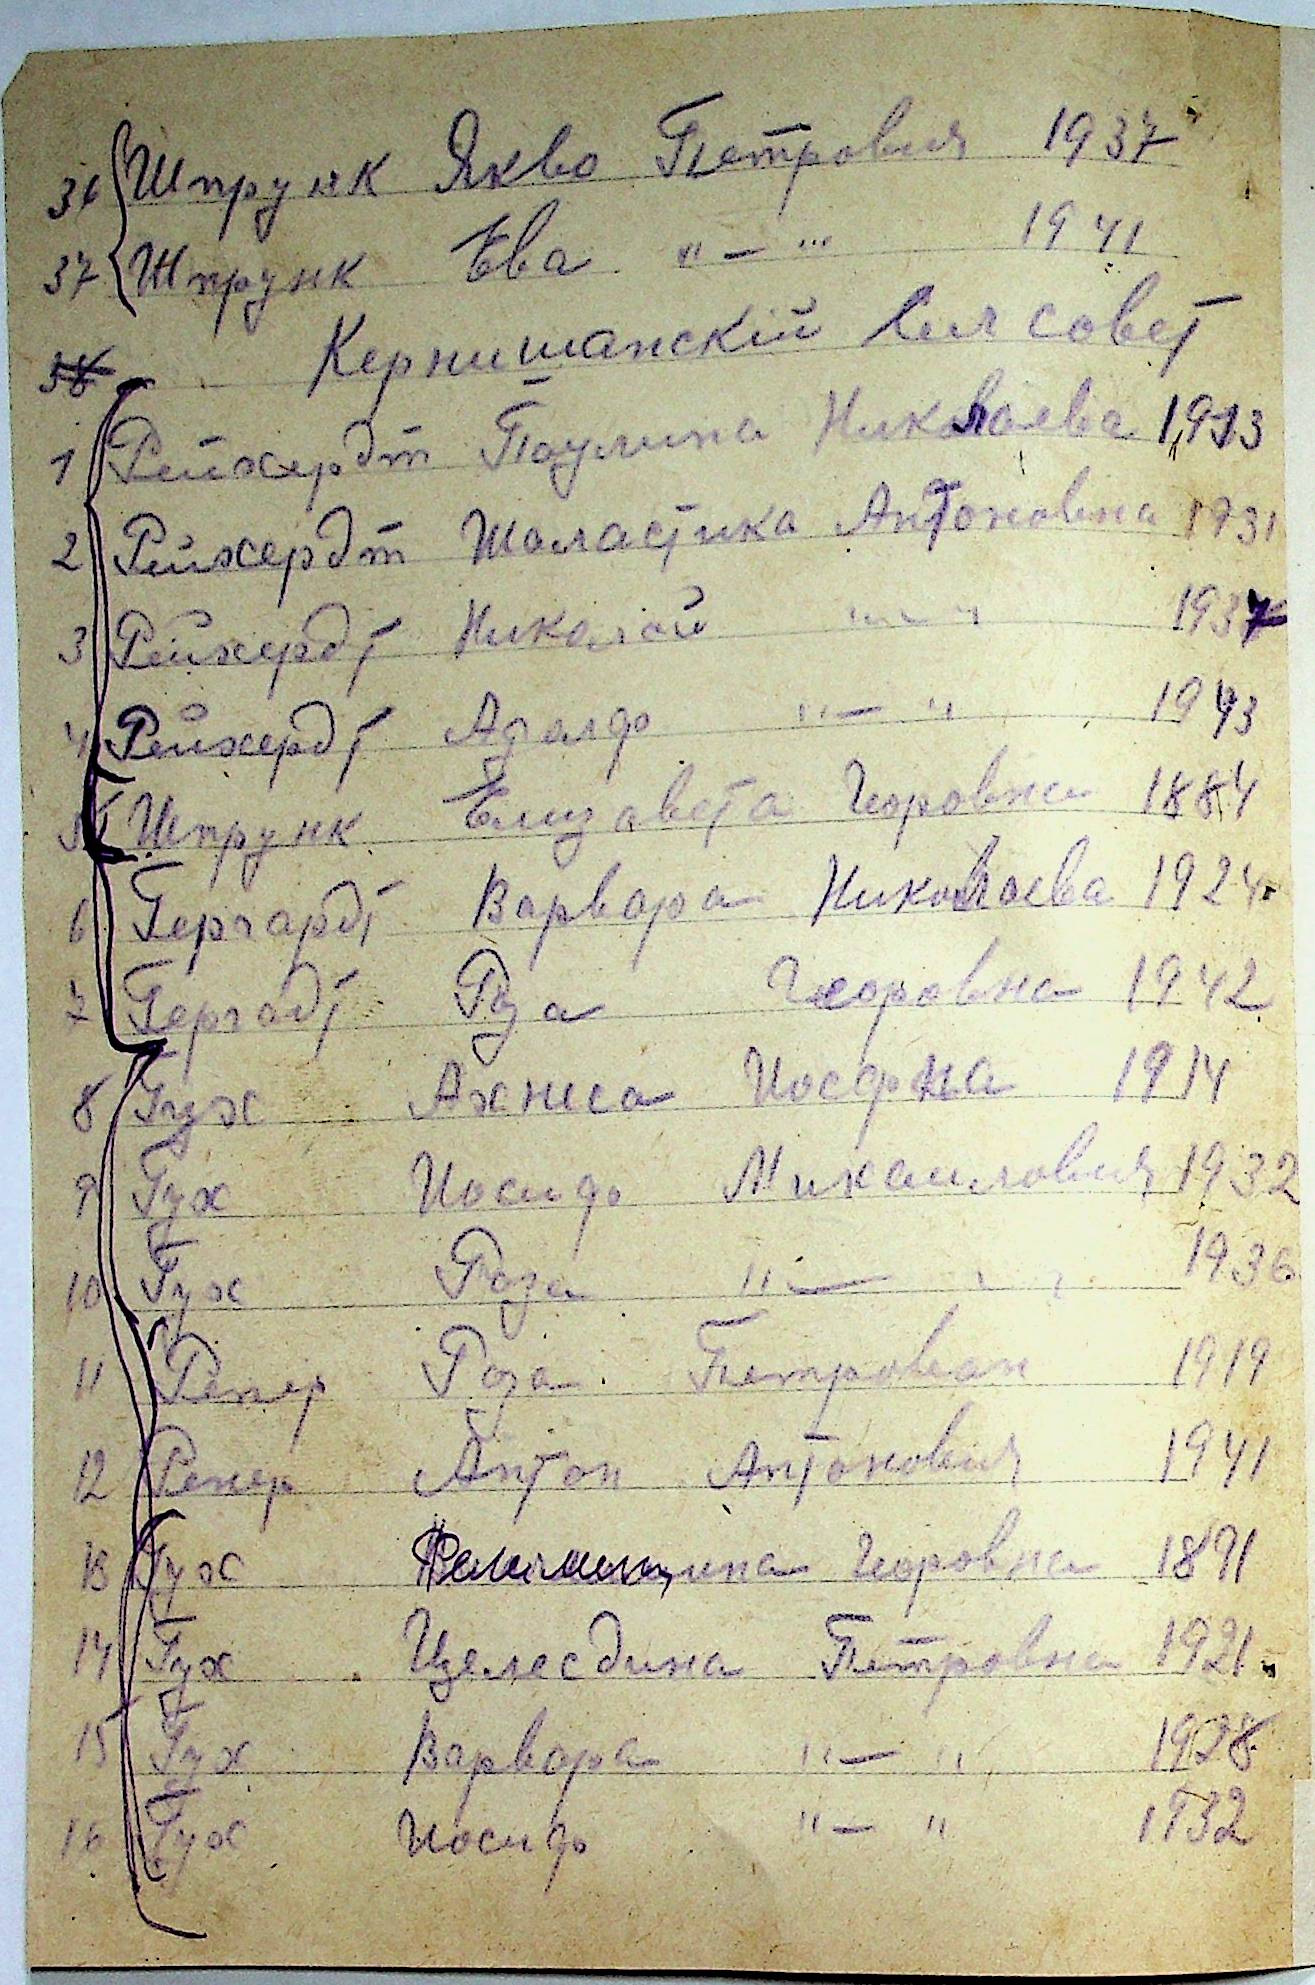 36 Шпрунк Якво Петрович 1937
37 Шпрунк Ева "—" 1941
38 Кернишанскій Сельсовет
1 Рейхердт Паулина Николаева 1913
2 Рейхердт Шаластика Антоновна 1931
3 Рейхердт Николай "—" 1937
4 Рейхердт Адалф "—" 1943
5 Шпрунк Елизавета Георовна 1884
6 Гергардт Варвара Николаева 1924
7 Гергадт Роза Георовна 1942
8 Гух Ахнеса Иосфна 1914
9 Гух Иосиф Михаилович 1932
10 Гух Роза "— " 1936
11 Репер Роза Петровап 1919
12 Репер Антон Антонович 1941
13 Гух Георовна 1891
14 Гух Целесдина Петровна 1921
15 Гух Варвара "—" 1928
16 Гух Иосиф "—" 1932